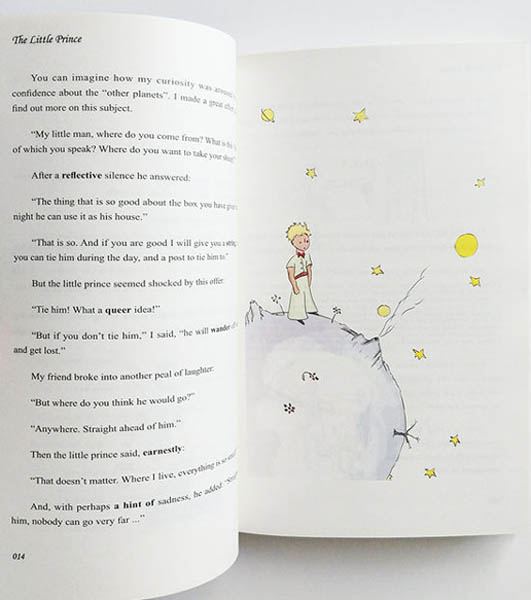 The Little Prince
You can imagine how my curiosity was
confidence about the "other planets". I made a great
find out more on this subject.
"My little man, where do you come from? What is
of which you speak? Where do you want to take your
After a reflective silence he answered:
"The thing that is so good about the box you have
night he can use it as his house."
"That is so. And if you are good I will give you a
you can tie him during the day, and a post to tie him to."
But the little prince seemed shocked by this offer:
"Tie him! What a queer idea!"
"But if you don't tie him," I said, "he will wander
and get lost."
My friend broke into another peal of laughter:
"But where do you think he would go?"
"Anywhere. Straight ahead of him."
Then the little prince said, earnestly:
"That doesn't matter. Where I live, everything is so
And, with perhaps a hint of sadness, he added:
him, nobody can go very far ..."
014